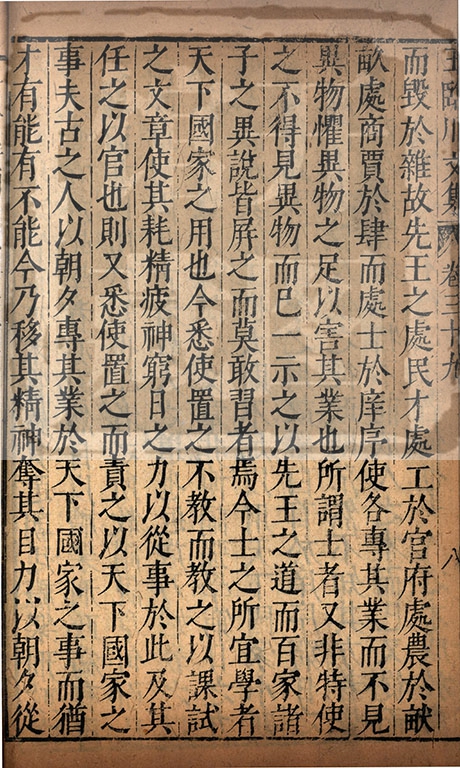 王臨川文集 卷三十九 八
而毀於雜故先王之處民才處工於官府處農於畎
畝處商賈於肆而處士於庠序使各專其業而不見
異物懼異物之足以害其業也所謂士者又非特使
之不得見異物而已一示之以先王之道而百家諸
子之異說皆屏之而莫敢習者焉今士之所宜學者
天下國家之用也今悉使置之不教而教之以課試
之文章使其耗精疲神窮日之力以從事於此及其
任之以官也則又悉使置之而責之以天下國家之
事夫古之人以朝夕專其業於天下國家之事而猶
才有能有不能今乃移其精神奪其日力以朝夕從